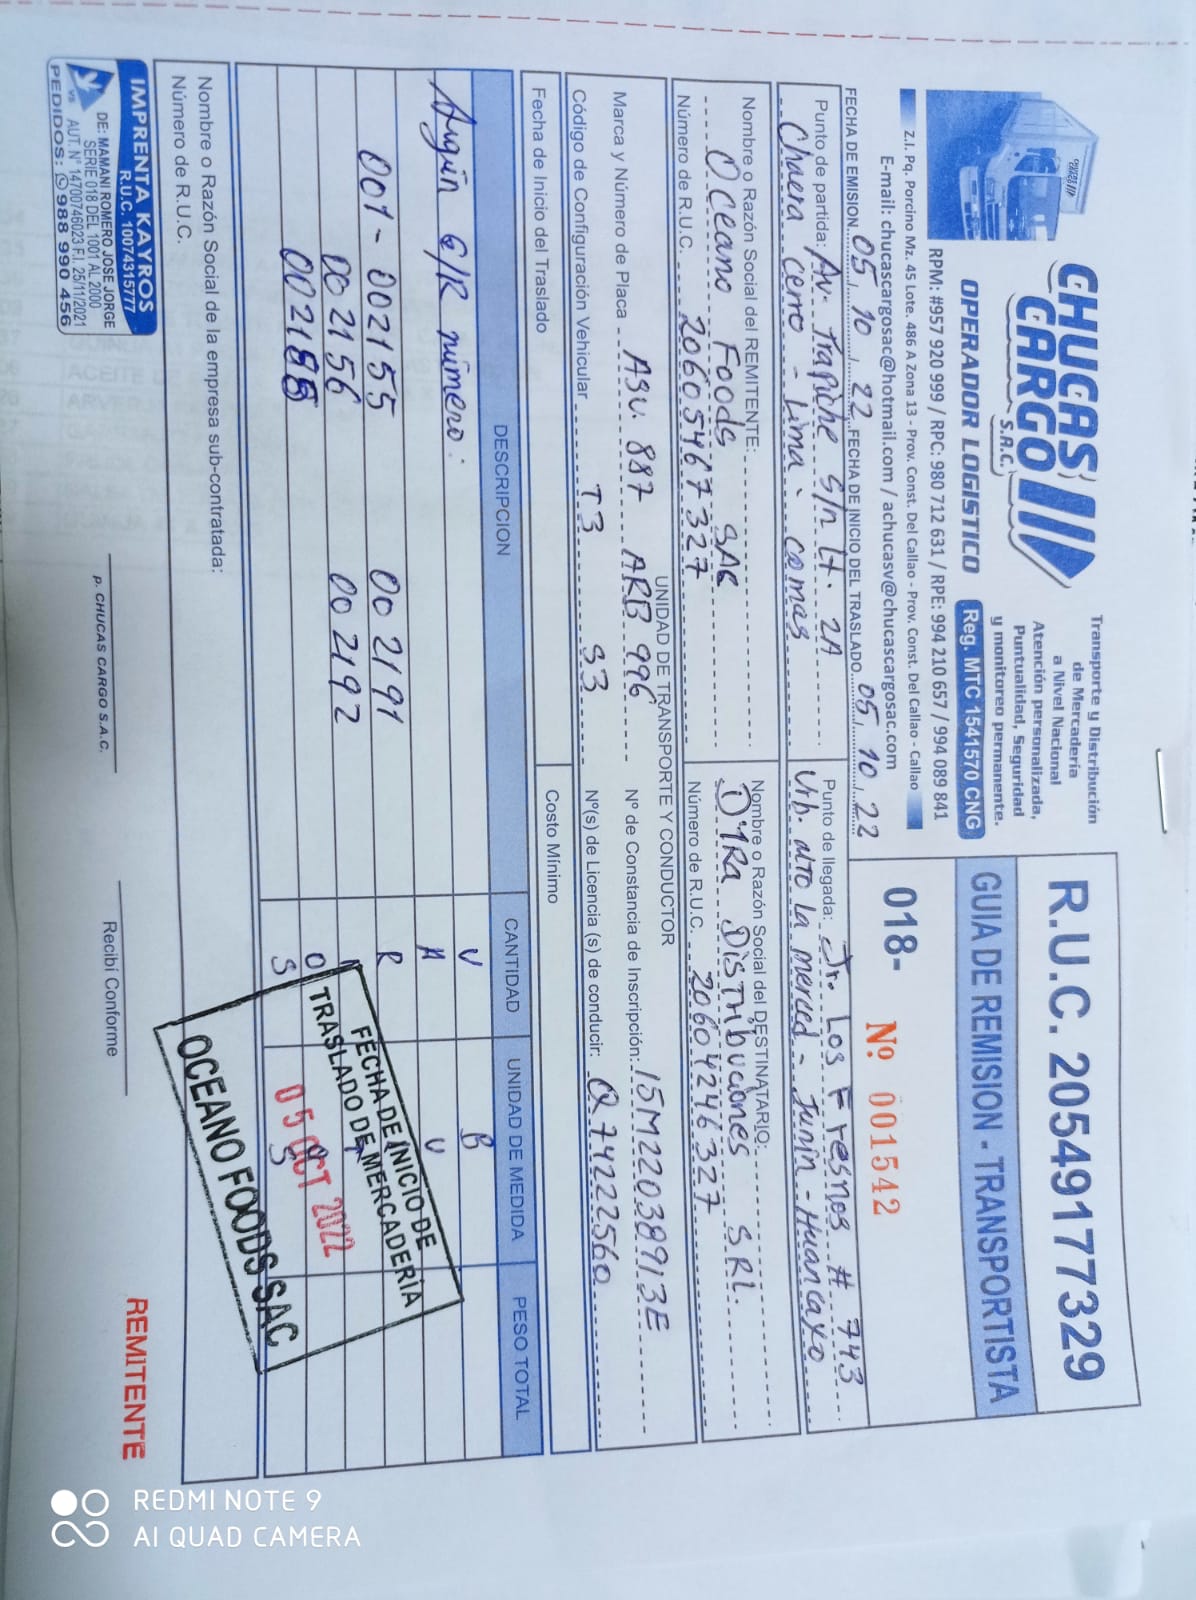 CHUCAS
CARGO
S.A.C.
OPERADOR LOGISTICO
Transporte y Distribución
de Mercadería
a Nivel Nacional
Atención personalizada,
Puntualidad, Seguridad
y monitoreo permanente.
Reg. MTC 1541570 CNG
RPM: #957 920 999 / RPC: 980 712 631 / RPE: 994 210 657 / 994 089 841
Z.I. Pq. Porcino Mz. 45 Lote. 486 A Zona 13 - Prov. Const. Del Callao - Prov. Const. Del Callao - Callao
E-mail: chucascargosac@hotmail.com / achucasv@chucascargosac.com
R.U.C. 20549177329
GUIA DE REMISION - TRANSPORTISTA
018- Nº 001542
FECHA DE EMISION 05 / 10 / 22 FECHA DE INICIO DEL TRASLADO 05 / 10 / 22
Punto de partida: Av. Trapiche S/n Lt. 2A
Chacra cerro - Lima - comas
Punto de llegada: Jr. Los Fresnos # 743
Urb. Alto la merced - Junin - Huancayo
Nombre o Razón Social del REMITENTE:
Oceano Foods SAC
Número de R.U.C. 20605467327
Nombre o Razón Social del DESTINATARIO:
D'MRa Distribuciones SRL.
Número de R.U.C. 20604246327
UNIDAD DE TRANSPORTE Y CONDUCTOR
Marca y Número de Placa A3V. 887 ARB 996
Nº de Constancia de Inscripción: 15M22038913E
Código de Configuración Vehicular T3 S3
Nº(s) de Licencia (s) de conducir: Q74222560
Fecha de Inicio del Traslado
Costo Mínimo
DESCRIPCION CANTIDAD UNIDAD DE MEDIDA PESO TOTAL
G/R número:
001- 002155 002191
002156 002192
V B
R
O
S S
FECHA DE INICIO DE
TRASLADO DE MERCADERIA
05 OCT 2022
OCEANO FOODS SAC
Nombre o Razón Social de la empresa sub-contratada:
Número de R.U.C.
IMPRENTA KAYROS
R.U.C. 10074315777
DE: MAMANI ROMERO JOSE JORGE
SERIE 018 DEL 1001 AL 2000
AUT. N° 14700746023 F.I. 25/11/2021
PEDIDOS: 988 990 456
p. CHUCAS CARGO S.A.C.
Recibí Conforme
REMITENTE
REDMI NOTE 9
AI QUAD CAMERA